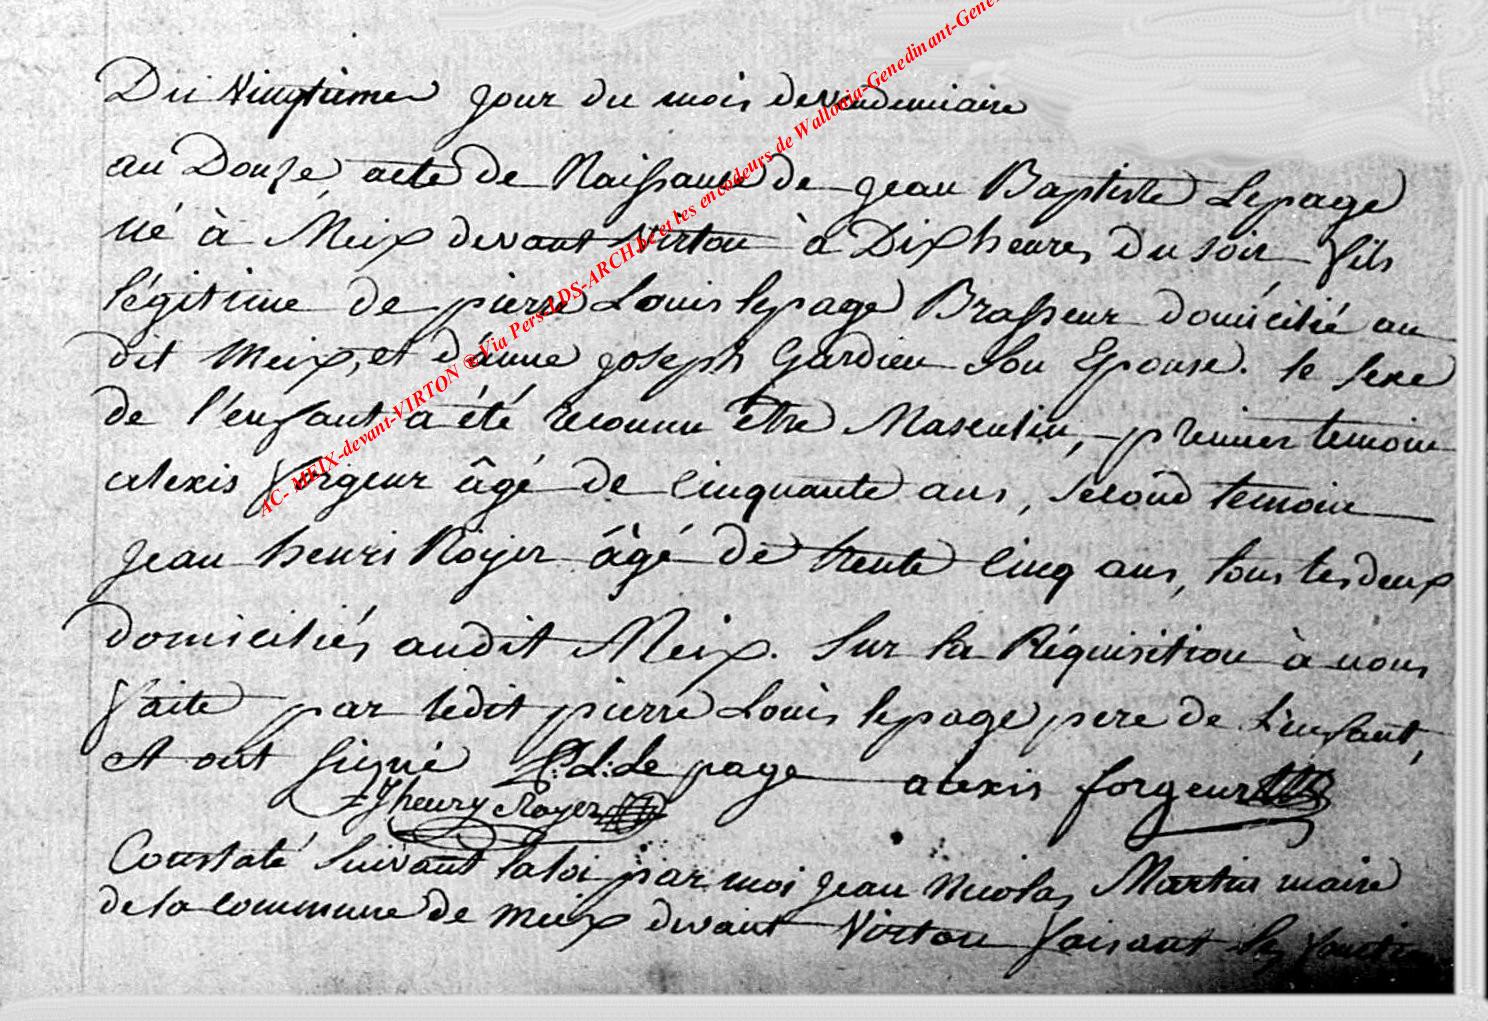 Du Vingtieme Jour du mois de vendemiaire
an Douze, acte de Naissance de jean Baptiste Lepage
né à Meix devant Virton à Dix heures Du soir fils
légitime de pierre Louis lepage Brasseur domicilié au
dit Meix, et d'anne joseph Gardien son Epouse. le sexe
de l'enfant a été reconnu être Masculin, premier temoin
alexis forgeur âgé de Cinquante ans, second temoin
jean henri Royer âgé de trente Cinq ans, tous les deux
domiciliés audit Meix. Sur la Réquisition à nous
faite par ledit pierre Louis lepage pere de L'enfant,
et ont signé P:L:Le page alexis forgeur
J henry Royer
Constaté suivant la loi par moi jean Nicolas Martin maire
de la commune de meix devant Virton faisant les fonctions
AC- MEIX-devant-VIRTON ® Via Pers LDS-ARCH be et les encodeurs de Wallonia-Genedinant-Gene